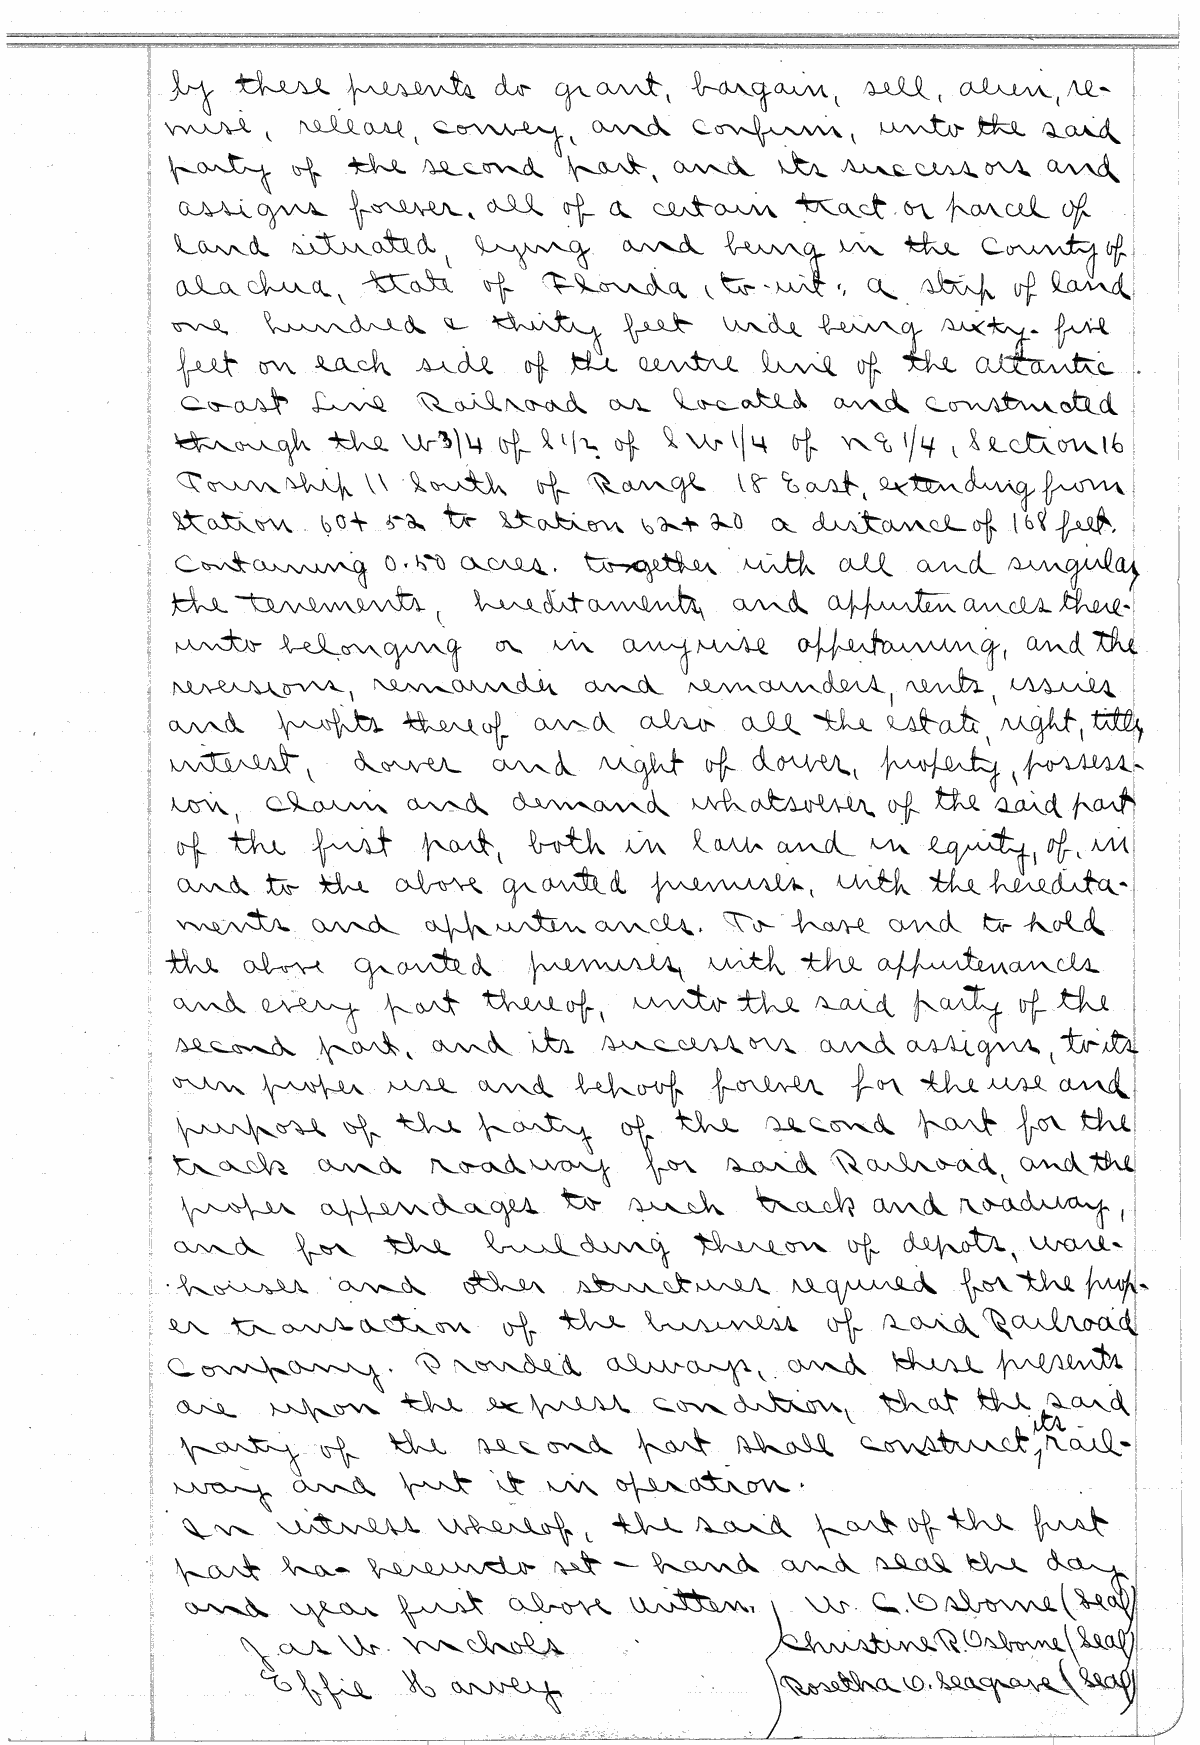 by these presents do grant, bargain, sell, alien, re-
mise, release, convey, and confirm, unto the said
party of the second part, and its successors and
assigns forever, all of a certain tract or parcel of
land situated, lying and being in the County of
Alachua, State of Florida, to-wit: A strip of land
one hundred & thirty feet wide being sixty-five
feet on each side of the centre line of the Atlantic
Coast Line Railroad as located and constructed
through the W 3/4 of S 1/2 of S W 1/4 of N E 1/4, Section 16
Township 11 South of Range 18 East, extending from
Station 60+52 to Station 62+20 a distance of 168 feet.
Containing 0.50 acres. together with all and singular
the tenements, hereditaments, and appurtenances there-
unto belonging or in anywise appertaining, and the
reversions, remainder and remainders, rents, issues
and profits thereof and also all the estate, right, title,
interest, dower and right of dower, property, possess-
ion, claim and demand whatsoever of the said part
of the first part, both in law and in equity, of, in
and to the above granted premises, with the heredita-
ments and appurtenances. To have and to hold
the above granted premises, with the appurtenances
and every part thereof, unto the said party of the
second part, and its successors and assigns, to its
own proper use and behoof forever for the use and
purpose of the party of the second part for the
track and roadway for said Railroad, and the
proper appendages to such track and roadway,
and for the building thereon of depots, ware-
houses and other structures required for the prop-
er transaction of the business of said Railroad
Company. Provided always, and these presents
are upon the express condition, that the said
party of the second part shall construct, its rail-
way and put it in operation.
In witness whereof, the said part of the first
part ha- hereunto set - hand and seal the day
and year first above written. W. C. Osborne (Seal)
Jas W. Nichols Christine R. Osborne (Seal)
Effie Harvey Rosetha O. Seagrave (Seal)